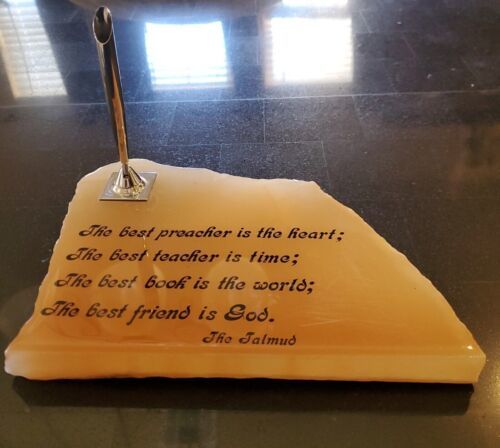 The best preacher is the heart;
The best teacher is time;
The best book is the world;
The best friend is God.
The Talmud